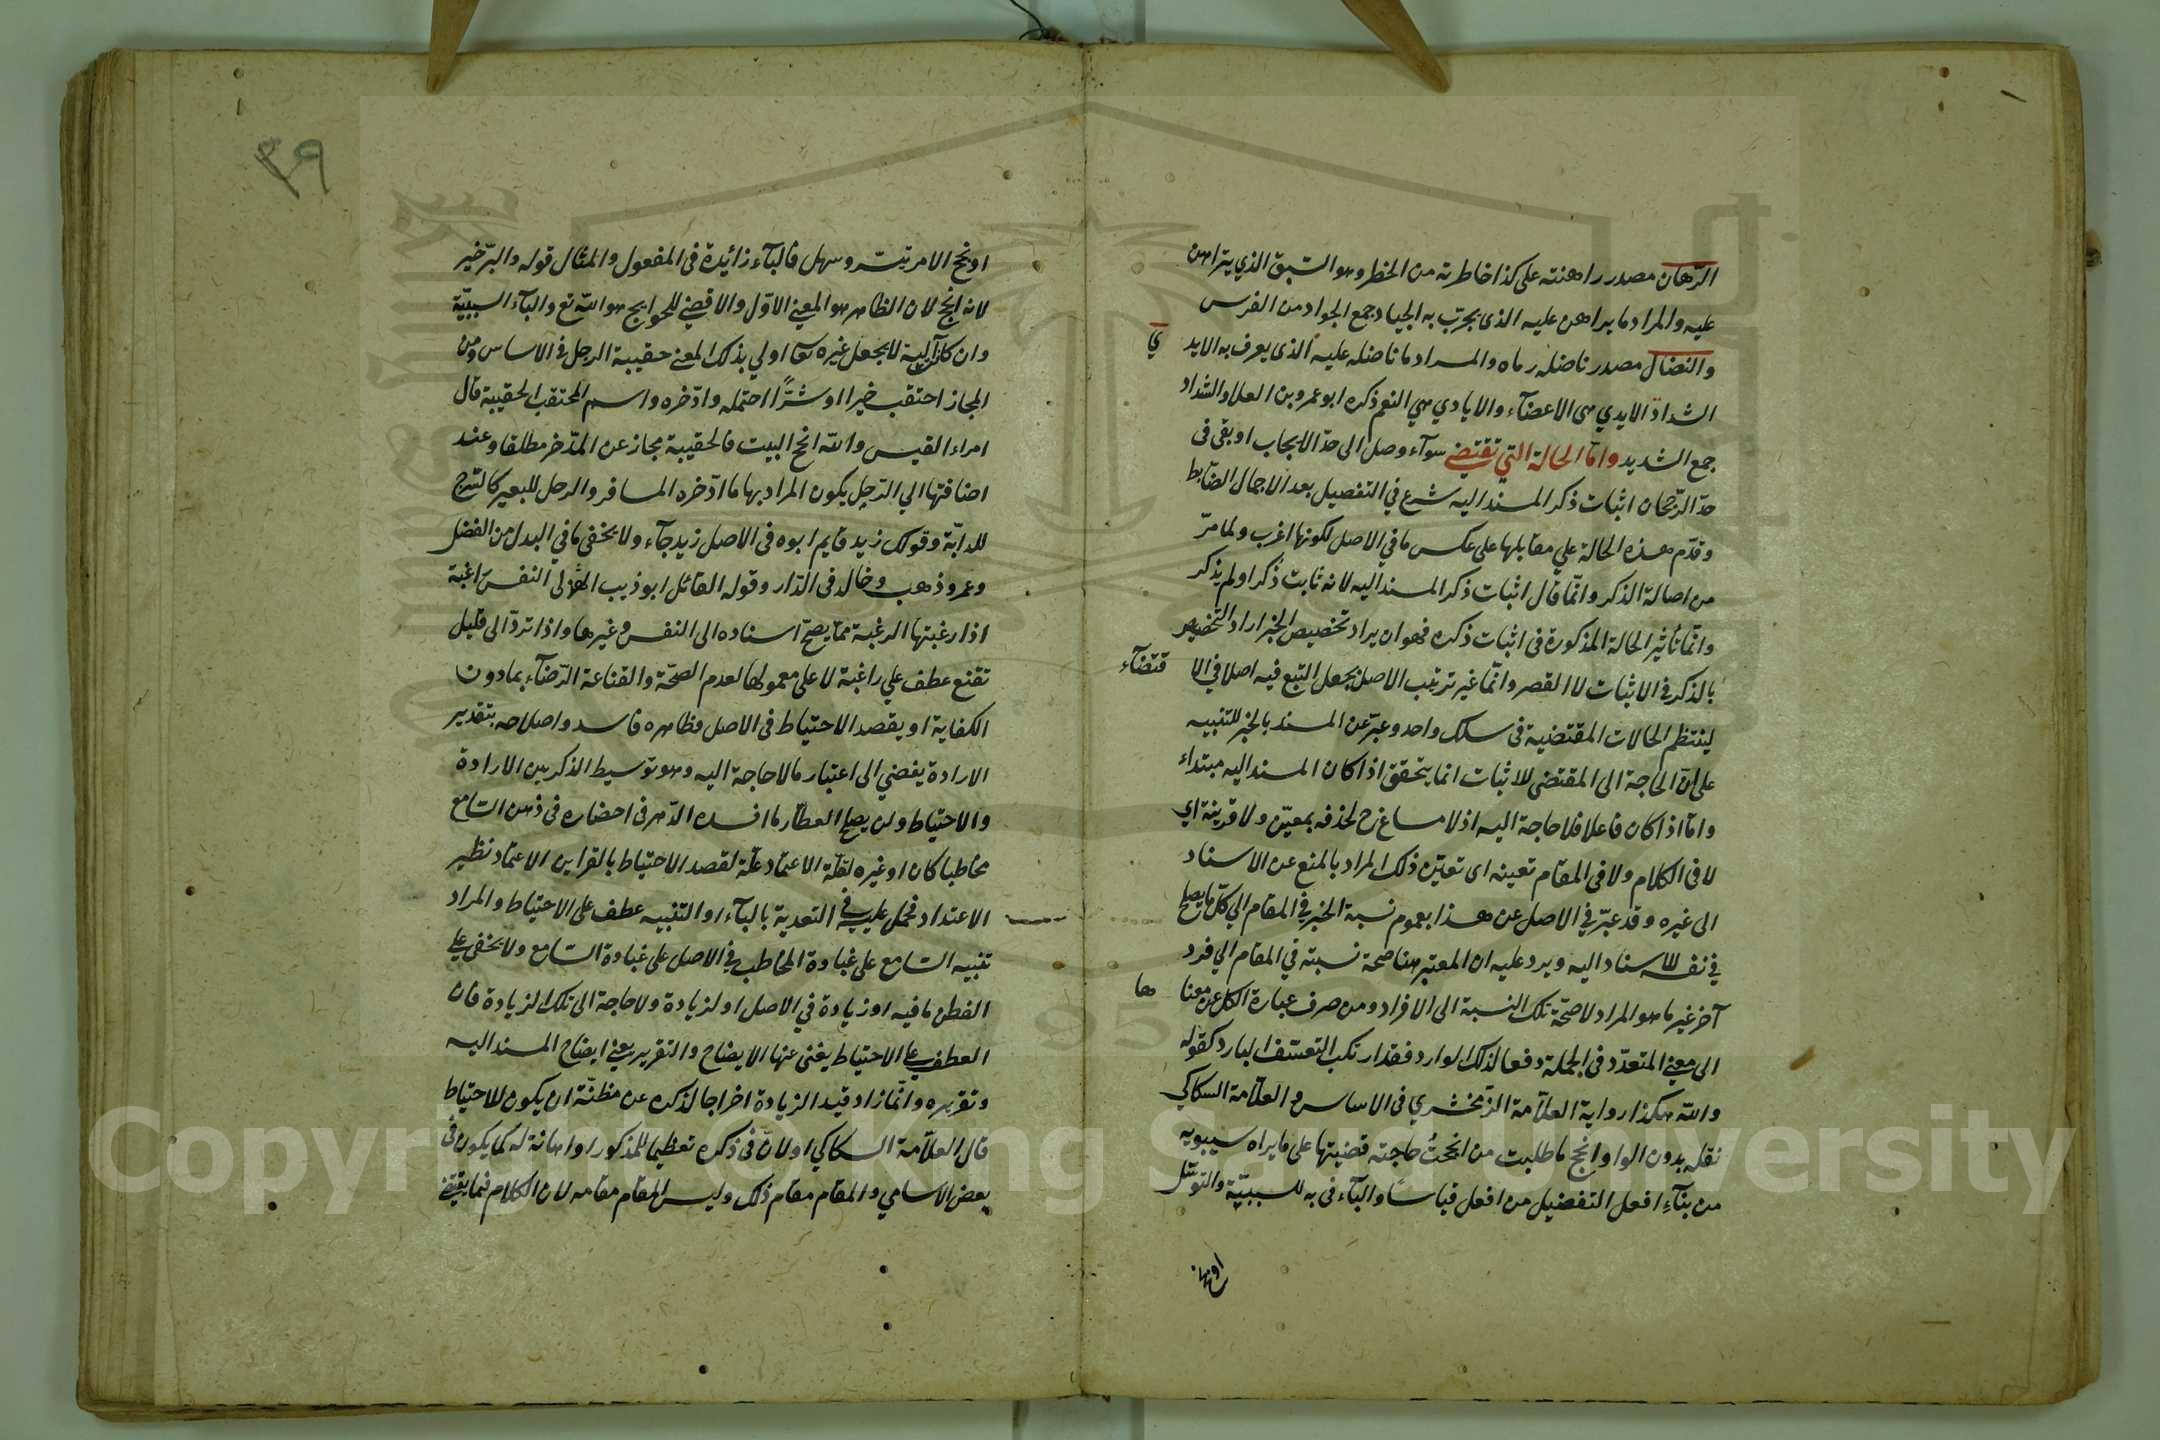 الرهان مصدر راهنته على كذا خاطرته من الخطر وهو السبق الذي يتراهن
عليه والمراد ما يراهن عليه الذى يجرّب به الجياد جمع الجواد من الفرس
والنضال مصدر ناضله رماه والمراد ما ناضله عليه الذى يعرف به الايد
ي
الشداد الايدي هى الاعضاء والايادي هي النعم ذكره ابو عمرو بن العلاء والشداد
جمع الشديد وامّا الحالة التي تقتضي سوآء وصل الى حدّ الايجاب او بقى فى
حدّ الرّجحان اثبات ذكر المسند اليه شرع في التفصيل بعد الاجمال الضابط
وقدّم هذه الحالة علي مقابلها على عكس ما في الاصل لكونها اغرب ولما مرّ
من اصالة الذكر وانّما قال اثبات ذكر المسند اليه لانه ثابت ذُكر او لم يذكر
وانّما تأثير الحالة المذكورة فى اثبات ذكره فهو ان يراد تخصيص الخبر اراد التخصيص
بالذكر في الاثبات لا القصر وانّما غير ترتيب الاصل بجعل التبع فيه اصلا في الا
قتضآء
لينتظم الحالات المقتضية فى سلك واحد وعبّر عن المسند بالخبر للتنبيه
على انّ الحاجة الى المقتضى للاثبات انما يتحقق اذا كان المسند اليه مبتداء
وامّا اذا كان فاعلا فلا حاجة اليه اذ لا مساغ ح لحذفه بمعيّن ولا قرينة اي
لا فى الكلام ولا فى المقام تعينه اى تعيّن ذلك المراد بالمنع عن الاسناد
الى غيره وقد عبّر في الاصل عن هذا بعموم نسبة الخبر في المقام الي كلّ ما يصلح
في نفسه للاسناد اليه ويرد عليه ان المعتبر هنا صحة نسبته في المقام الي فرد
آخر غير ما هو المراد لا صحّة تلك النسبة الى الافراد ومن صرف عبارة الكل عن معنا
ها
الى معنى المتعدّد فى الجملة دفعا لذلك الوارد فقد ارتكب التعسّف البارد كقوله
والله هكذا رواية العلاّمة الزمخشري فى الاساس و العلاّمة السكاكي
نقله بدون الواو انجح ما طلبت من انجحتُ حاجته قضيتها على ما يراه سيبويه
من بنآءِ افعل التفضيل من افعل قياسًا والبآء فى به للسببيّة والتوسّل
او نجح
٣٩
او نجح الامر تيسّر وسهل فالبآء زائدة فى المفعول والمثال قوله والبرّ خير
لانه انجح لان الظاهر هو المعنى الاوّل والاقضي للحوايج هو الله تع والبآء السببيّة
وان كان آلية لا يجعل غيره تعا اولي بذلك المعنى حقيبة الرحل في الاساس ومن
المجاز احتقب خيرا او شرًّا احتمله وادّخره واسم المحتقب الحقيبة قال
امراء القيس والله انجح البيت فالحقيبة مجاز عن المدّخر مطلقا وعند
اضافتها الي الرّحل يكون المراد بها ما ادّخره المسافر والرحل للبعير كالسّرج
للدابّة وقولك زيد قايم ابوه فى الاصل زيد جآء ولا يخفى ما في البدل من الفضل
وعمرو ذهب وخالد فى الدّار وقوله القائل ابو ذيب الهذلى النفس راغبة
اذا رغبتها الرغبة ممّا يصحّ اسناده الى النفس وغيرها واذا تردّ الى قليل
تقنع عطف علي راغبة لا على معمولها لعدم الصحّة والقناعة الرّضآء بما دون
الكفاية او يقصد الاحتياط فى الاصل وظاهره فاسد واصلاحه بتقدير
الارادة يفضي الى اعتبار ما لا حاجة اليه وهو توسيط الذكر بين الارادة
والاحتياط ولن يصلح العطّار ما افسده الدّهر فى احضاره فى ذهن السّامع
مخاطبا كان او غيره لقلّة الاعتماد علّة لقصد الاحتياط بالقراين الاعتماد نظير
الاعتداد فحمل عليه في التعدية بالبآء او التنبيه عطف على الاحتياط والمراد
تنبيه السّامع على غباوة المخاطب في الاصل على غباوة السّامع ولا يخفى على
الفطن ما فيه او زيادة في الاصل او لزيادة ولا حاجة الى تلك الزيادة فان
العطف على الاحتياط يغنى عنها الايضاح والتقرير يعنى ايضاح المسند اليه
وتقريره وانّما زاد قيد الزيادة اخراجا لذكره عن مظنّة ان يكون للاحتياط
قال العلاّمة السكاكي او لانّ فى ذكره تعظيما للمذكور او اهانة له كما يكون فى
بعض الاسامي والمقام مقام ذلك وليس المقام مقامه لان الكلام فيما يقتضي
Copyright © King Saud University